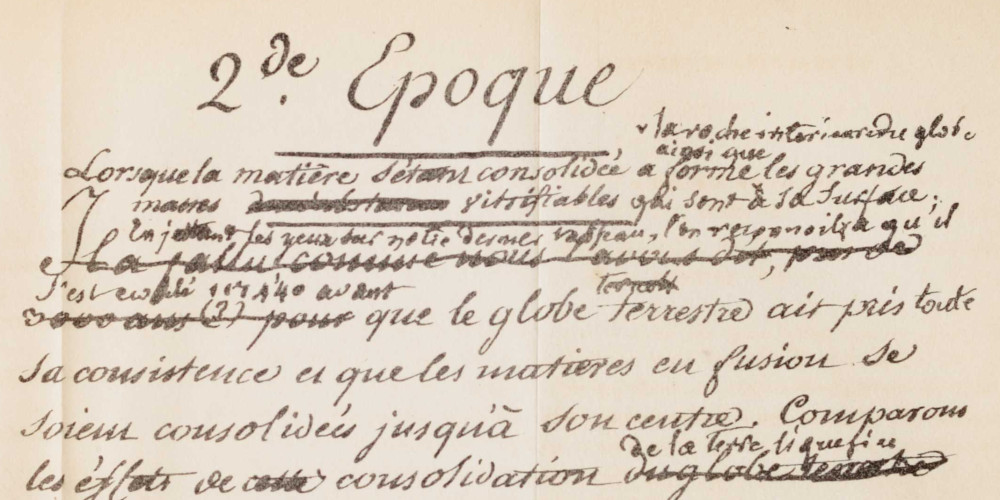 2.de Epoque
la roche interieure du globe
ainsi que
Lorsque la matière s'étant consolidée a formé les grandes
masses vitrifiables qui sont à sa surface.
En jettant les yeux sur notre dernier tableau, l'on
qu'il
Il a fallu comme nous l'avons dit, près de
s'est ecoulé avant
3000 ans (2) pour que le globe terrestre ait pris toute
sa consistence et que les matieres en fusion se
soient consolidées jusqu'à son centre. Comparons
de la terre liquefiée
les éffets de cette consolidation du globe terrestre